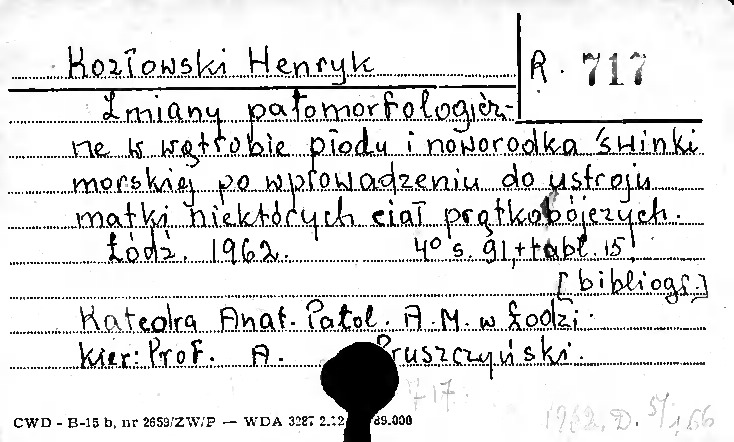 Kozłowski Henryk
R. 717
Zmiany patomorfologicz-
ne w wątrobie płodu i noworodka świnki
morskiej po wprowadzeniu do ustroju
matki niektórych ciał prątkobójczych.
Łódź. 1962. 4° s. 91, + tabl. 15,
[bibliogr.]
Katedra Anat. Patol. A.M. w Łodzi.
Kier: Prof. A. Pruszczyński.
717.
CWD - B-15 b, nr 2659/ZW/P — WDA 3287 89.000
1962. D.